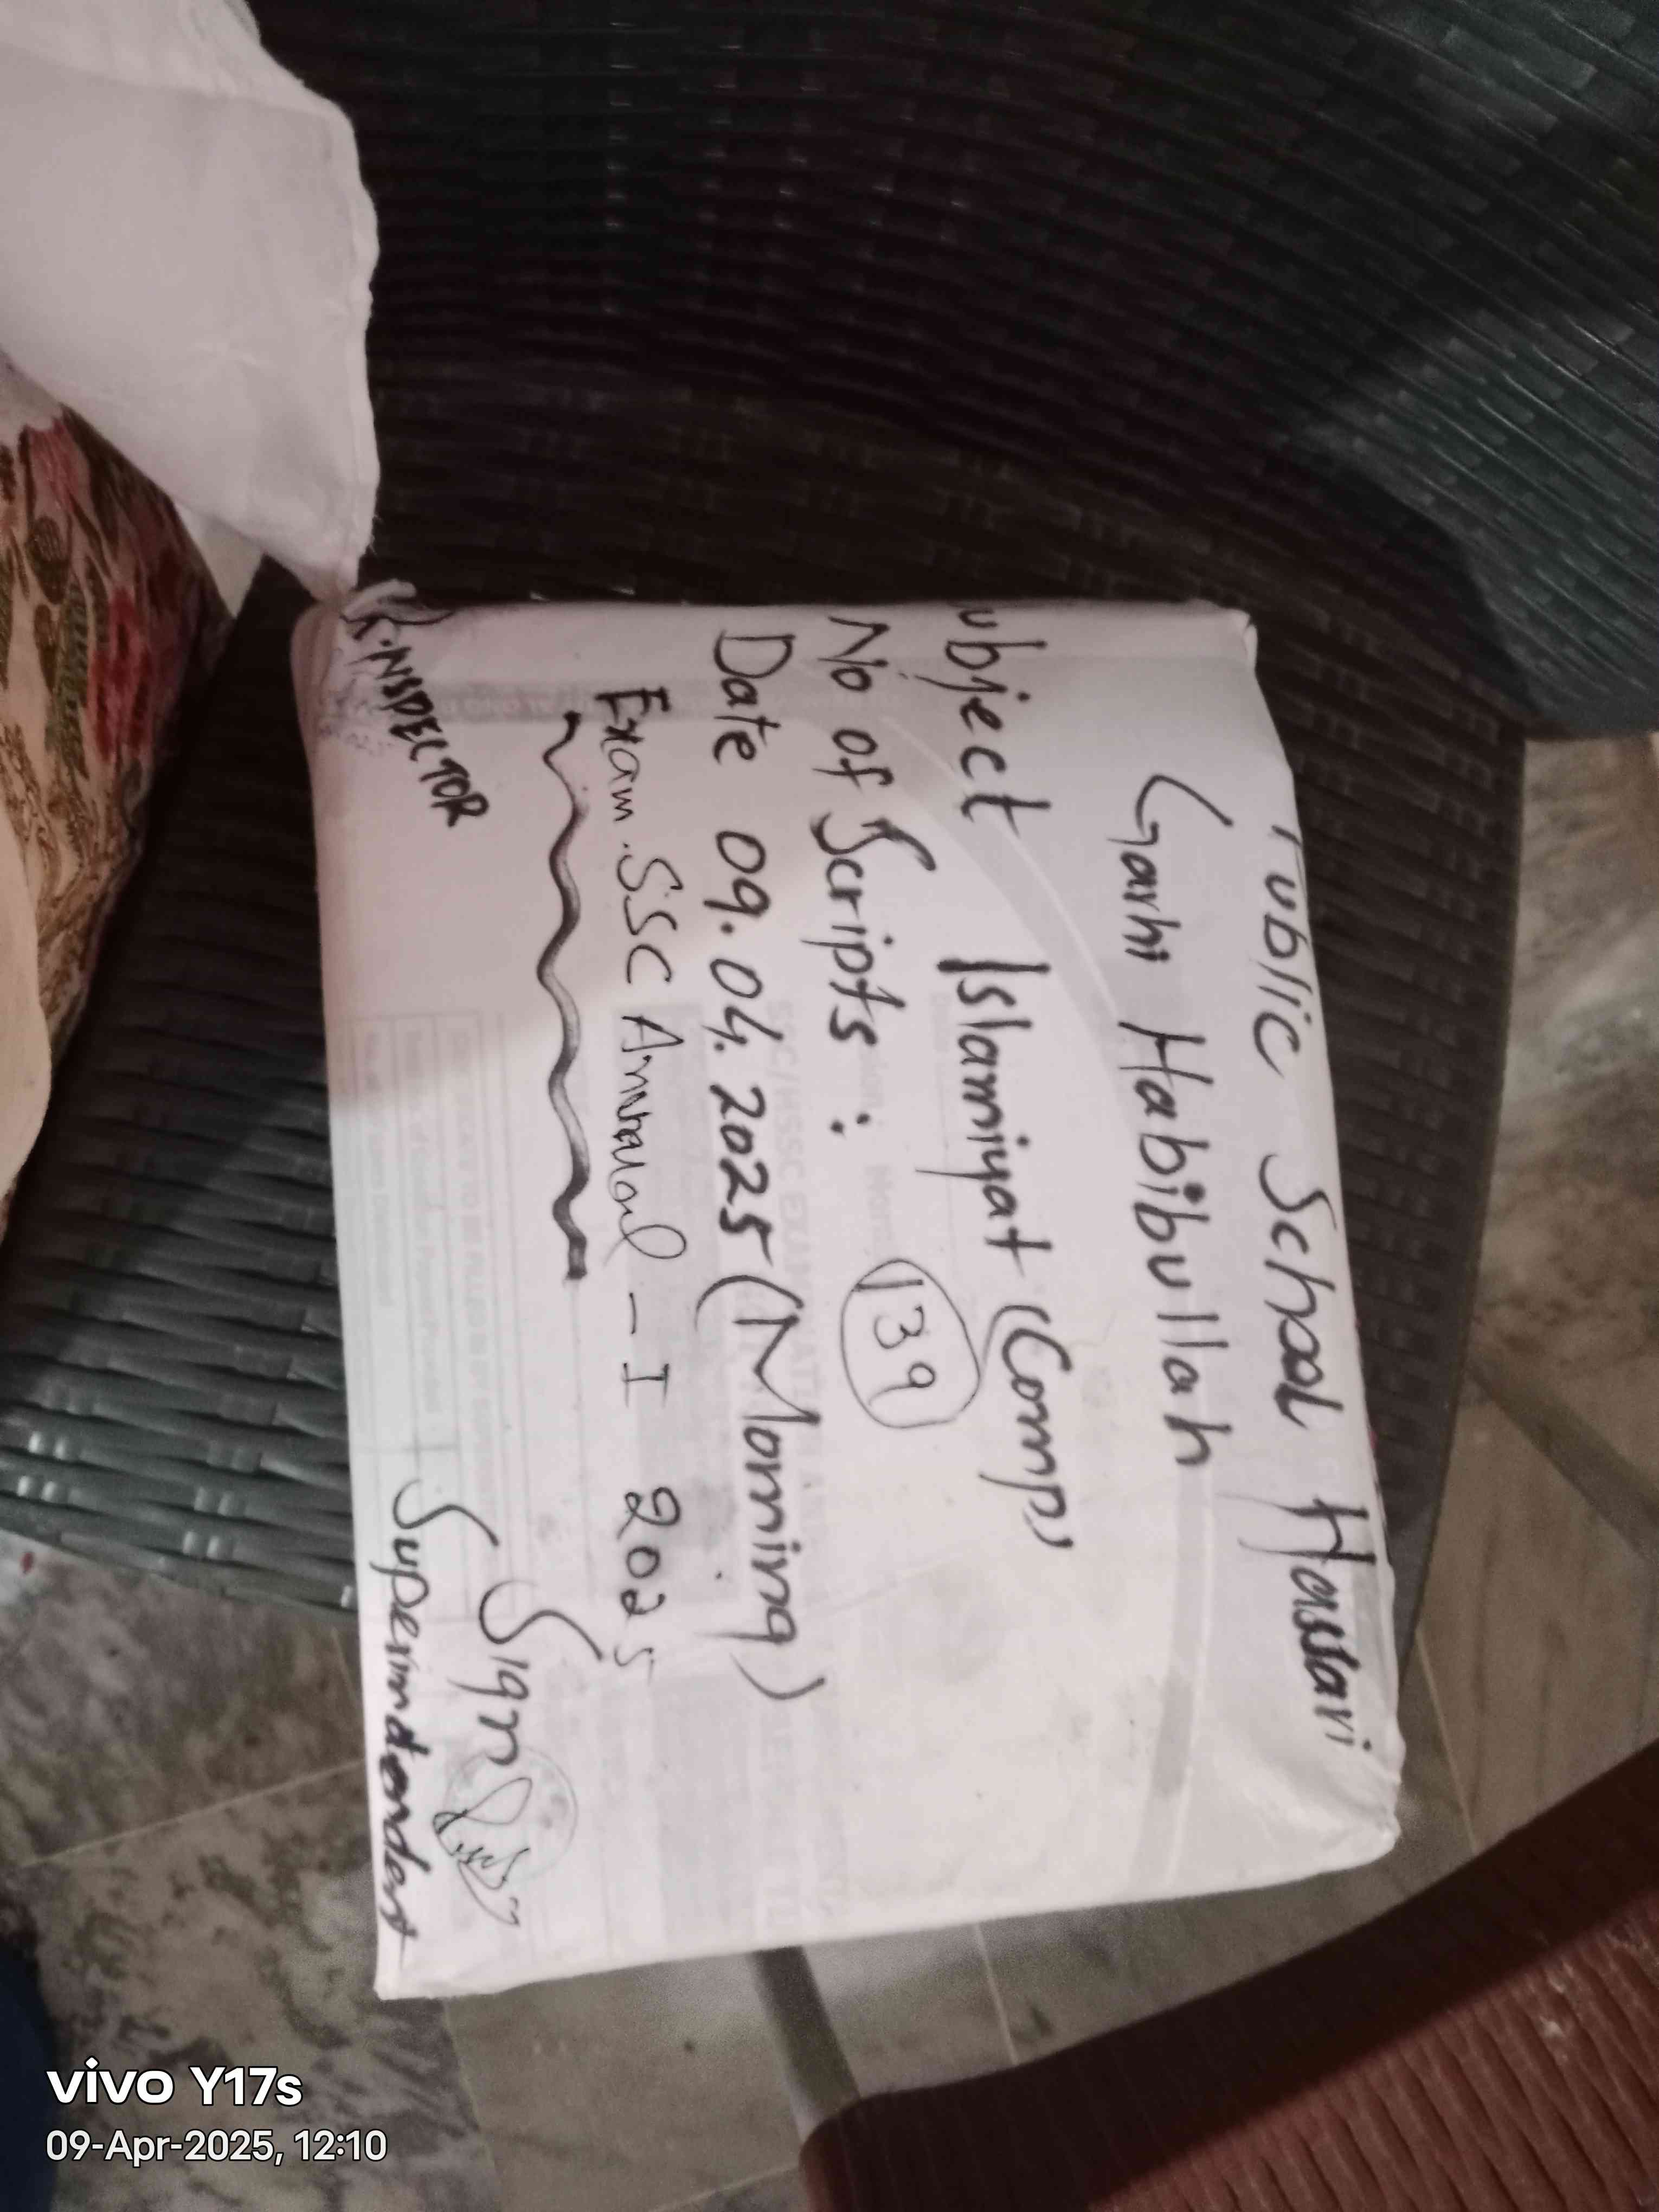 Public School Hassari
Garhi Habibullah
ubject Islamiyat (Comp)
No of Scripts : 139
Date 09.04.2025 (Morning)
Exam SSC Annual - I 2025
Sign
INSPECTOR
Superintendent
vivo Y17s
09-Apr-2025, 12:10